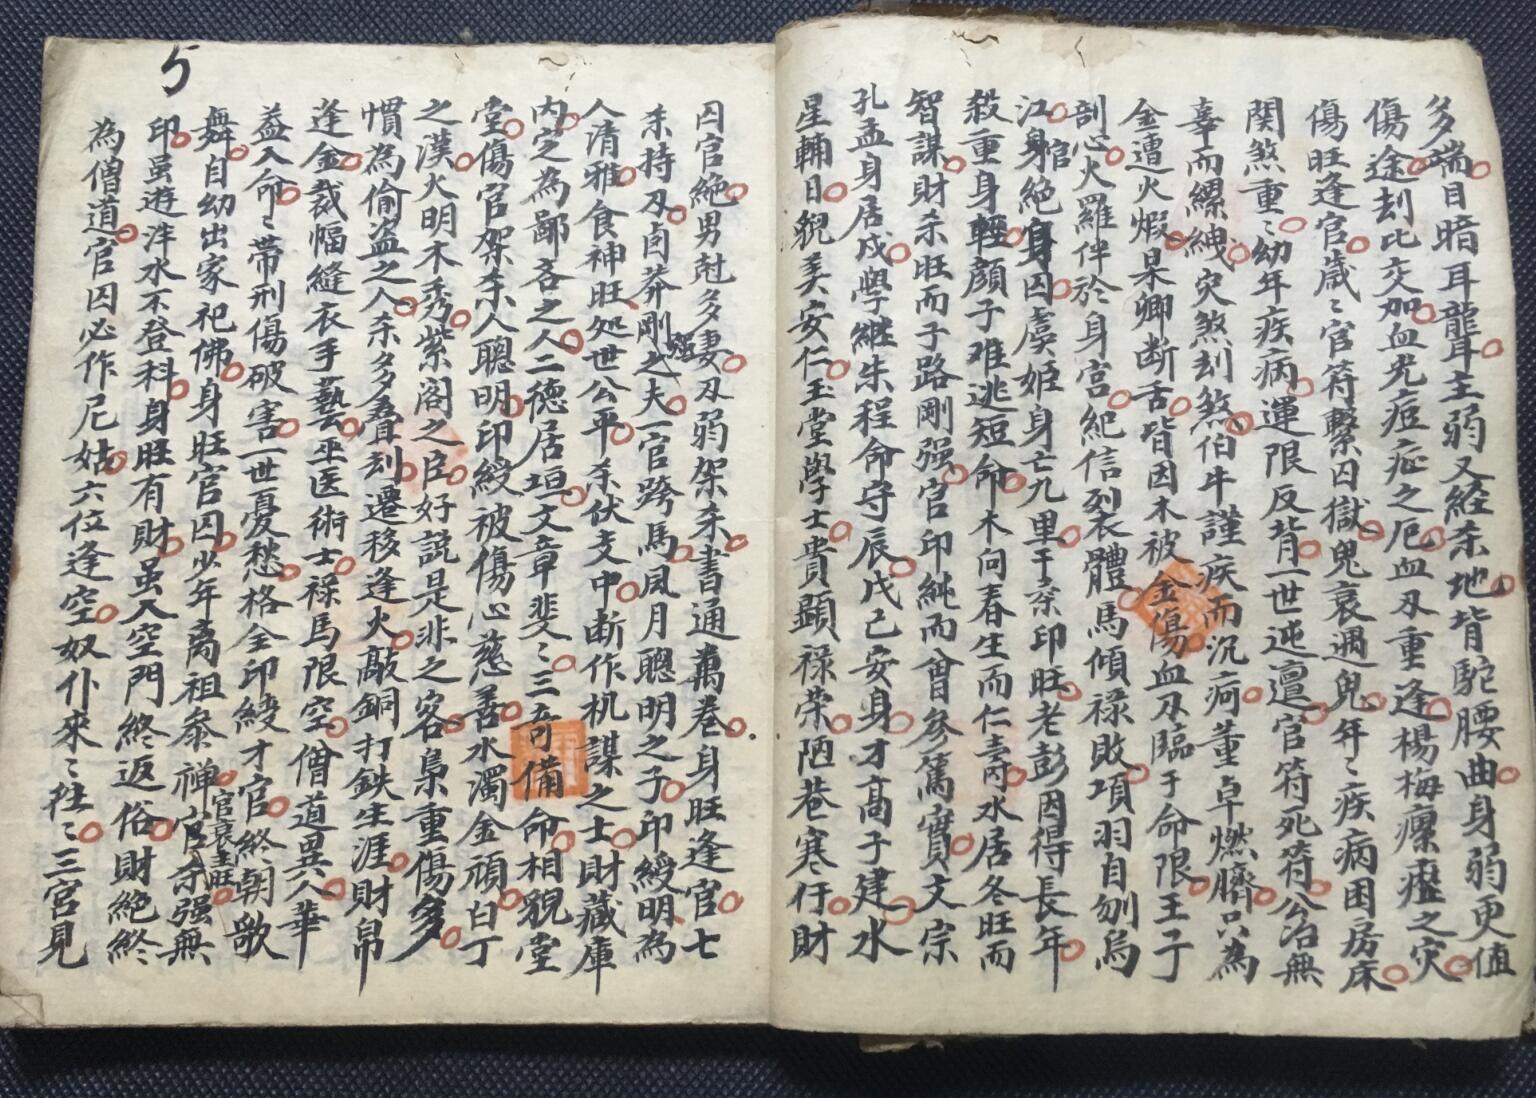 多端目暗耳聾主弱又經杀地背駝腰曲身弱更值
傷途刦比交加血光痘症之厄血刃重逢楊梅瘰癧之灾
傷旺逢官歲〻官符繫囚獄鬼衰遇鬼年〻疾病困房床
関煞重〻幼年疾病運限反背一世迍邅官符死符公冶無
辜而縲絏灾煞刦煞伯牛謹疾而沉疴董卓燃臍只為
金遭火煆杲卿断舌皆因木被金傷血刃臨于命限王子
剖心火羅伴於身宮紀信列衣體馬傾祿敗項羽自刎烏
江身官絕身囚虞姬身亡九里干杀印旺老彭因得長年
殺重身輕顏子难逃短命木向春生而仁壽水居冬旺而
智謀財杀旺而子路剛强官印純而曾參篤實文宗
孔孟身居戌學継朱程命守辰戊己安身才高子建水
星輔日貌美安仁玉堂學士貴顯祿荣陋巷寒仃財
囚官絕男尅多妻刃弱架杀書通萬卷身旺逢官七
杀持刃卤莽剛强之夫一官跨馬風月聰明之子印綬明為
人清雅食神旺処世公平杀伏支中断作机謀之士財藏庫
内定為鄙吝之人二德居垣文章斐〻三奇備命相貌堂
堂傷官架杀人聰明印綬被傷心慈善水濁金頑白丁
之漢火明木秀紫阁之臣好說是非之客梟重傷多
慣為偷盗之人杀多叠刦遷移逢火敲銅打鉄生涯財帛
逢金裁幅縫衣手藝巫医術士祿馬限空僧道異人華
盖入命〻帶刑傷破害一世憂愁格全印綬才官終朝歌
舞自幼出家祀佛身旺官囚少年离祖參禅官衰
印虽遊泮水不登科身旺有財虽入空門終返俗財絕終
為僧道官囚必作尼姑六位逢空奴仆來〻往〻三宮見
5